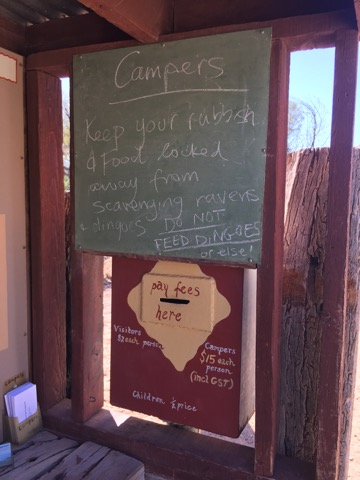 Campers
Keep your rubbish
& Food locked
away from
scavenging ravens
& dingoes DO NOT
FEED DINGOES
or else!
pay fees
here
Visitors
$2 each person
Campers
$15 each
person
(incl GST)
Children ½ price